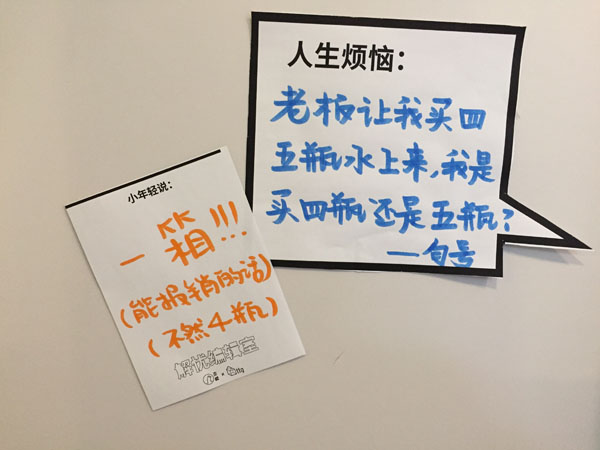 人生烦恼：
老板让我买四
五瓶水上来，我是
买四瓶还是五瓶？
—句号
小年轻说：
一箱!!!
(能报销的话)
(不然4瓶)
解忧编辑室